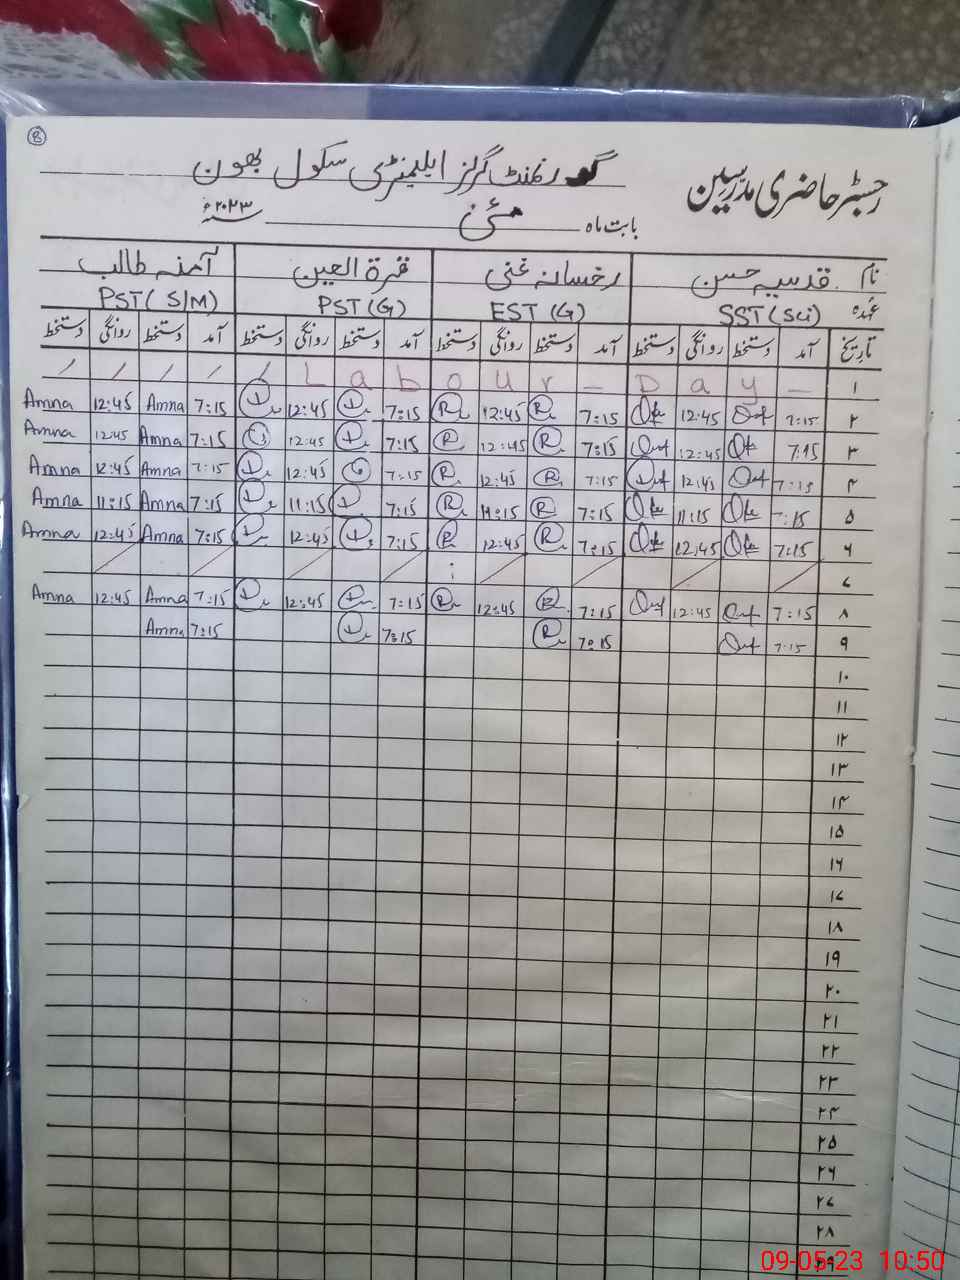 8
گورنمنٹ گرلز ایلیمنٹری سکول بھون
رجسٹر حاضری مدرسین
بابت ماہ مئی ۲۰۲۳ء
نام قدسیہ حسن رخسانہ غنی قرۃ العین آمنہ طالب
عہدہ SST (Sci) EST (G) PST (G) PST( S/M)
تاریخ آمد دستخط روانگی دستخط آمد دستخط روانگی دستخط آمد دستخط روانگی دستخط آمد دستخط روانگی دستخط
۱ / / / / / Labour - Day -
۲ 7:15 12:45 7:15 R 12:45 R 7:15 12:45 7:15 Amna 12:45 Amna
۳ 7:15 12:45 7:15 R 12:45 R 7:15 12:45 7:15 Amna 12:45 Amna
۴ 7:15 12:45 7:15 R 12:45 R 7:15 12:45 7:15 Amna 12:45 Amna
۵ 7:15 11:15 7:15 R 11:15 R 7:15 11:15 7:15 Amna 11:15 Amna
۶ 7:15 12:45 7:15 R 12:45 R 7:15 12:45 7:15 Amna 12:45 Amna
۷
۸ 7:15 12:45 7:15 R 12:45 R 7:15 12:45 7:15 Amna 12:45 Amna
۹ 7:15 7:15 R 7:15 7:15 Amna
۱۰
۱۱
۱۲
۱۳
۱۴
۱۵
۱۶
۱۷
۱۸
۱۹
۲۰
۲۱
۲۲
۲۳
۲۴
۲۵
۲۶
۲۷
۲۸
۲۹
09-05-23 10:50